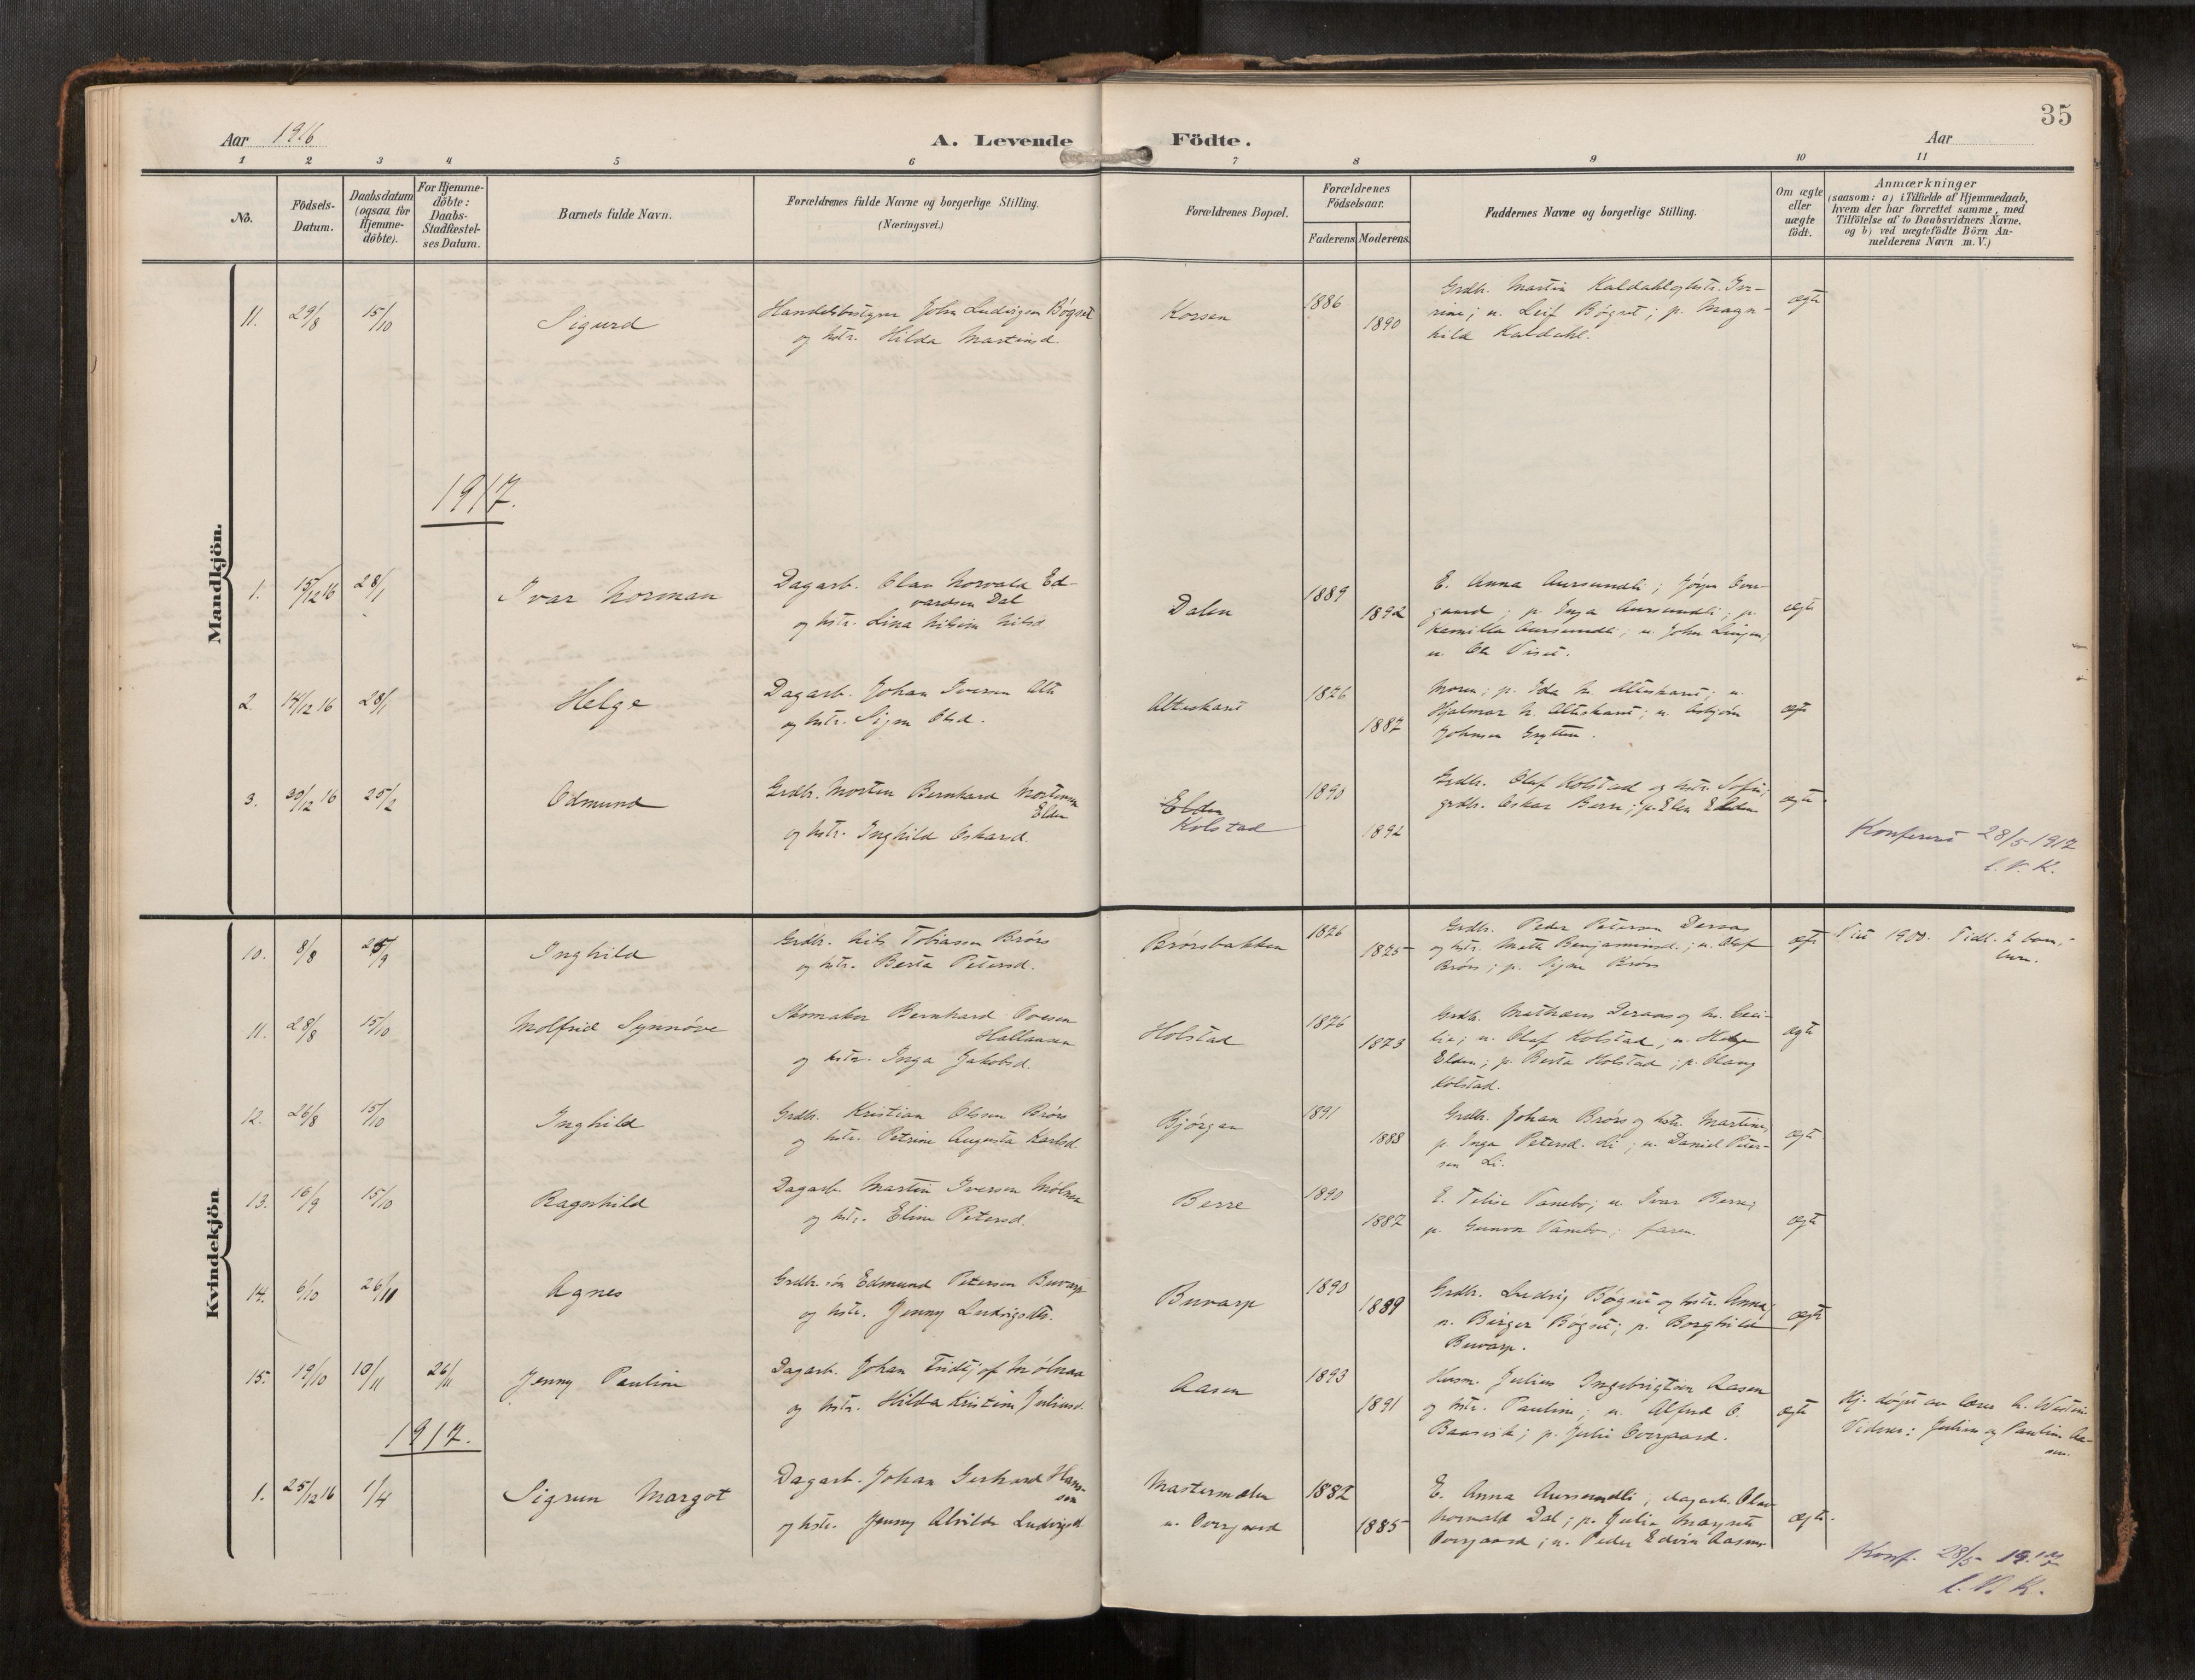 35
Aar 1916
A. Levende Födte.
Aar
1 2 3 4 5 6 7 8 9 10 11
No.
Födsels-
Datum.
Daabsdatum
(ogsaa for
Hjemme-
döbte).
For Hjemme-
döbte:
Daabs-
Stadfæstel-
ses Datum.
Barnets fulde Navn.
Forældrenes fulde Navne og borgerlige Stilling.
(Næringsvei.)
Forældrenes Bopæl.
Forældrenes
Födselsaar.
Faderens Moderens.
Faddernes Navne og borgerlige Stilling.
Om ægte
eller
uægte
födt.
Anmærkninger
(saasom: a) i Tilfælde af Hjemmedaab,
hvem der har forrettet samme, med
Tilföielse af to Daabsvidners Navne.
og b) ved uægtefödte Börn An-
melderens Navn m. V.)
Mandkjön.
11. 29/8 15/10 Sigurd
Handelsbestyrer John Ludvigsen Bøgset
og hstr. Hilda Martinsd.
Korsen 1886 1890
Grdbr. Martin Kaldahl og hstr.
u. Leif Bøgset; p. Magn-
hild Kaldahl.
ægte
1917.
1. 15/12 16 28/1 Ivar Norman
Dagarb. Olav Norvald Ed-
vardsen Dal
og hstr. Lina Nilsine Nilsd.
Dalen 1889 1892
E. Anna Aursundli; Jørgen Over-
gaard; p. Inga Aursundli; p.
Kamilla Aursundli; u. John
u. Ole
ægte
2. 14/12 16 28/1 Helge
Dagarb. Johan Iversen
og hstr. Signe Olsd.
Altinskard 1876 1887
Moren; p. Ida N. Altinskard; u.
Hjalmar N. Altinskard; u. Asbjørn
Johnsen
ægte
3. 30/12 16 25/2 Odmund
Grdbr. Morten Bernhard Mortensen
Elden
og hstr. Inghild Oskarsd.
Elden
Kolstad 1890 1892
Grdbr. Olaf Kolstad og hstr. Sofie;
grdbr. Oskar Berre; p. Elen Elden
ægte
Konferert 28/5 1917
Kvindekjön
10. 8/8 25/9 Inghild
Grdbr. Nils Tobiassen Brørs
og hstr. Berta Petersd.
Brørsbakken 1876 1875
Grdbr. Peder Petersen Deraas
og hstr. Mette Benjaminsd.; u. Olaf
Brørs; p. Signe Brørs
ægte
Viet 1900. Tidl. 2 barn,
11. 28/8 15/10 Molfrid Synnøve
Skomaker Bernhard Ovesen
Hallansen
og hstr. Inga Jakobsd.
Holstad 1876 1873
Grdbr. Mathæus Deraas og h.
u. Olaf Kolstad; u. Helge
Elden; p. Berta Holstad; p. Olaug
Kolstad.
ægte
12. 26/8 15/10 Inghild
Grdbr. Kristian Olsen Brørs
og hstr. Petrine Augusta Karlsd.
Bjørgan 1891 1888
Grdbr. Johan Brørs og hstr. Martine,
p. Inga Petersd. Li; u. Daniel Peter-
sen Li.
ægte
13. 16/9 15/10 Ragnhild
Dagarb. Martin Iversen Mølnaa
og hstr. Eline Petersd.
Berre 1890 1887
E. Vanebo; u. Ivar Berre;
p. Gunvor Vanebo; faren.
ægte
14. 6/10 26/11 Agnes
Grdbr. søn Edmund Petersen Buvarp
og hstr. Jenny Ludvigsdtr.
Buvarp 1890 1889
Grdbr. Ludvig Bøgset og hstr. Anna;
u. Birger Bøgset; p. Borghild
Buvarp.
ægte
15. 19/10 19/11 26/11 Jenny Pauline
Dagarb. Johan Fridtjof Mølnaa
og hstr. Hilda Kristine Juliusd.
Aasen 1893 1891
Husm. Julius Ingebrigtsen Aasen
og hstr. Pauline; u. Alfred O.
p. Julie Overgaard.
ægte
Hj. døpt av
Vidner: Julius og Pauline Aa-
sen.
1917.
1. 25/12 16 1/4 Sigrun Margot
Dagarb. Johan Gerhard Hans-
sen
og hstr. Jenny Alvilde Ludvigsd.
Mastermoen
u. Overgaard 1882 1885
E. Anna Aursundli; dagarb. Olav
Norvald Dal; p. Julie Margrete
Overgaard; u. Peder Edvin
ægte
Konf. 28/5 1917